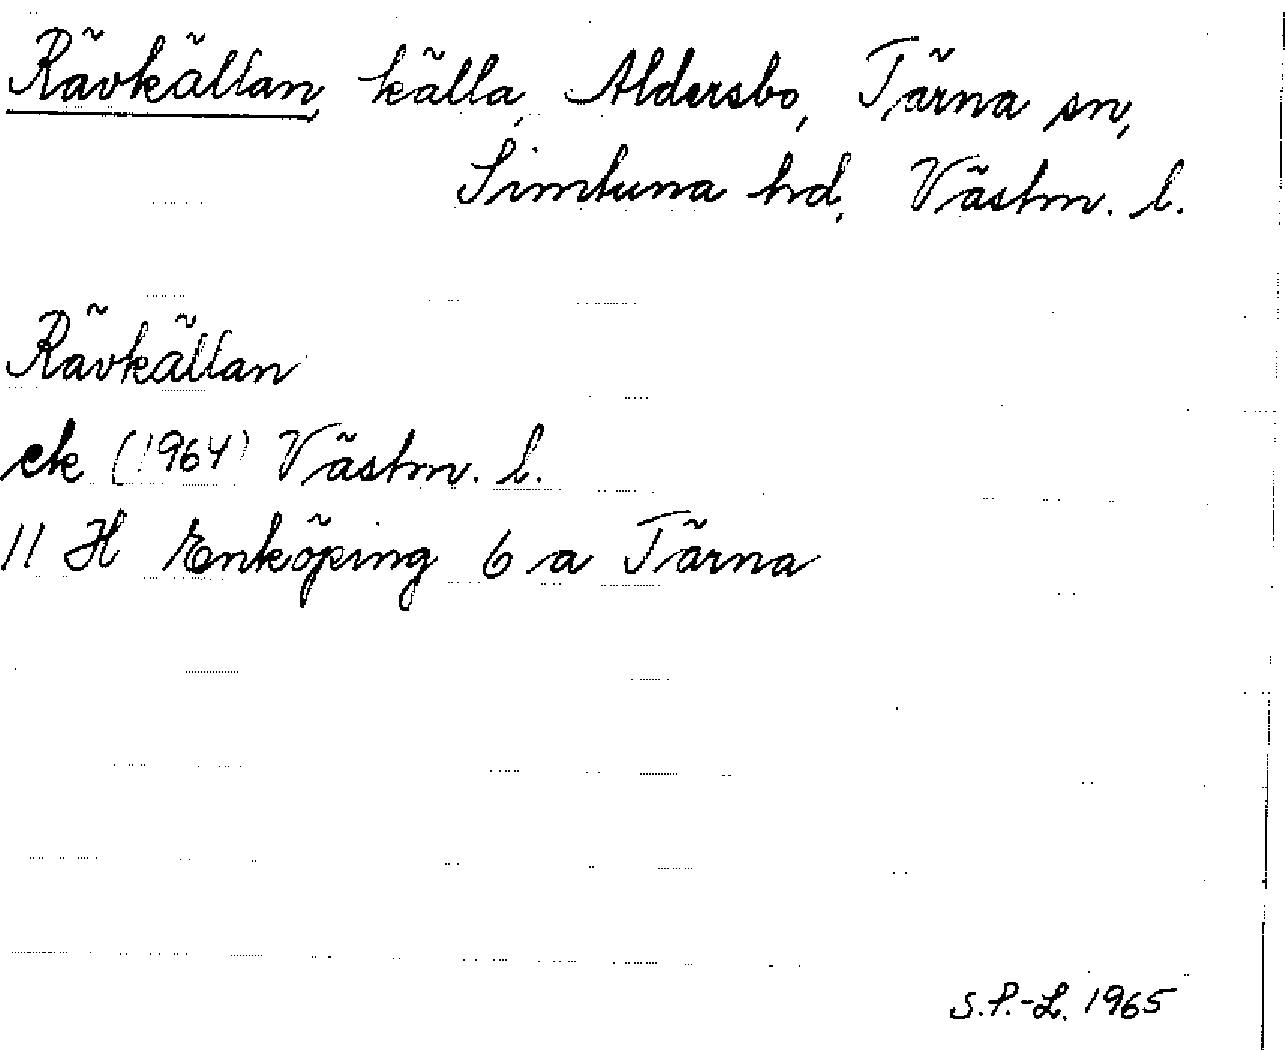 Rävkällan, källa, Aldersbo, Tärna sn,
Simtuna hd, Västm. l.
Rävkällan
ek (1964) Västm. l.
11 H Enköping 6 a Tärna
S.P.-L. 1965